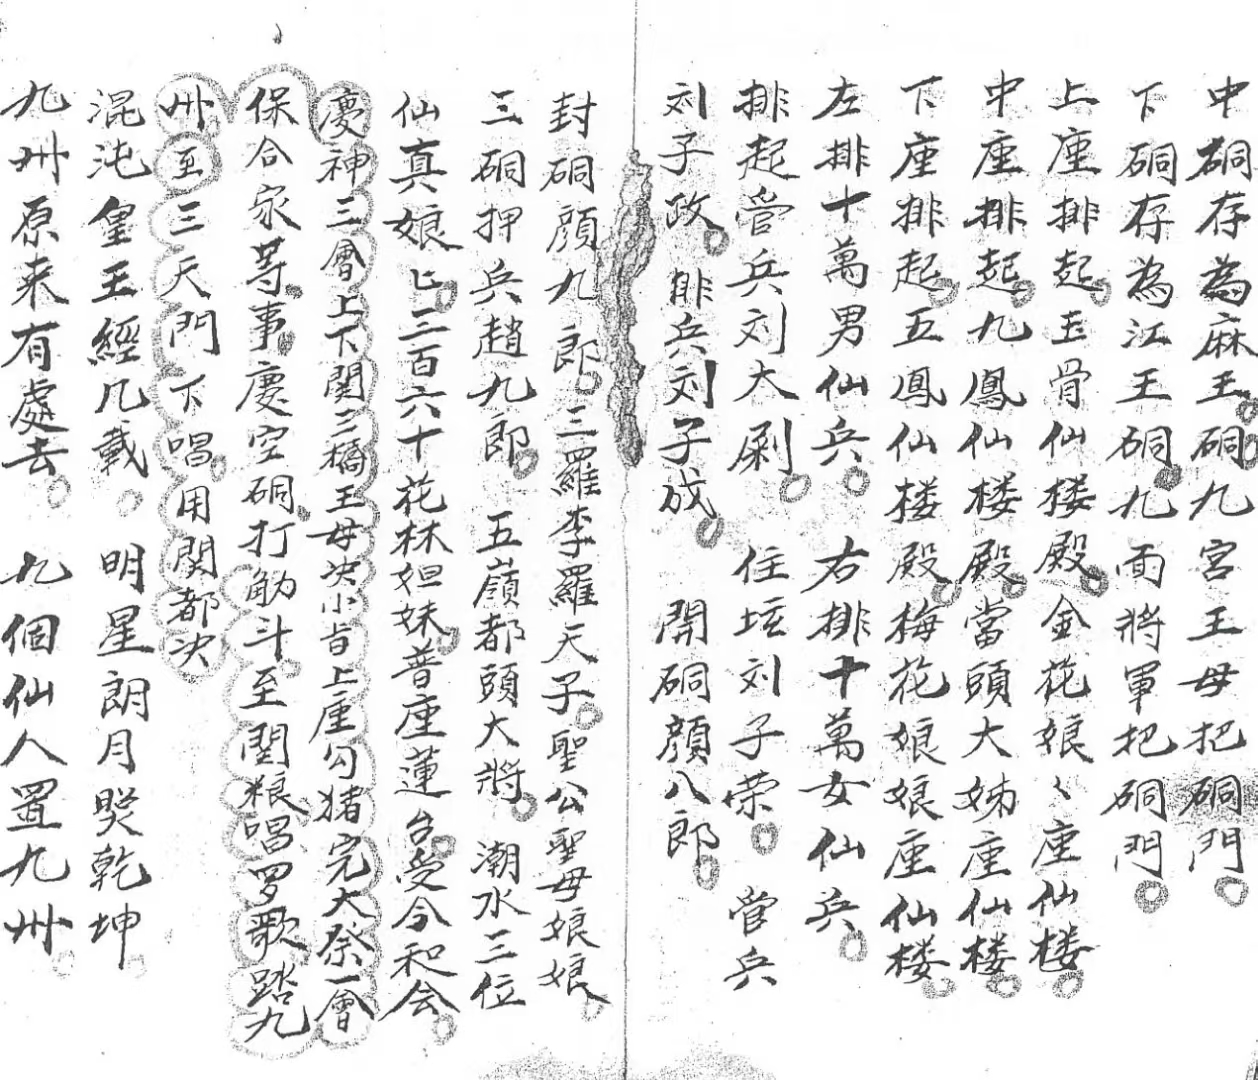 中硐存為麻王硐九宮王母把硐門
下硐存為江王硐九面將軍把硐門
上座排起玉骨仙楼殿金花娘々座仙楼
中座排起九鳳仙楼殿當頭大姊座仙楼
下座排起五鳳仙楼殿梅花娘娘座仙楼
左排十萬男仙兵右排十萬女仙兵
排起管兵刘大剧住坛刘子荣管兵
刘子政排兵刘子成開硐顔八郎
封硐顔九郎三羅李羅天子聖公聖母娘娘
三硐押兵趙九郎五嶺都頭大將潮水三位
仙真娘上三百六十花林姐妹普座蓮台受今和会
慶神三會上下関三橋王母决小旨上座勾猪完大祭一會
保合家等事慶空硐打觔斗至関粮唱罗歌踏九
州至三天門下唱用関都决
混沌皇王經几載明星朗月照乾坤
九州原来有處去九個仙人置九州